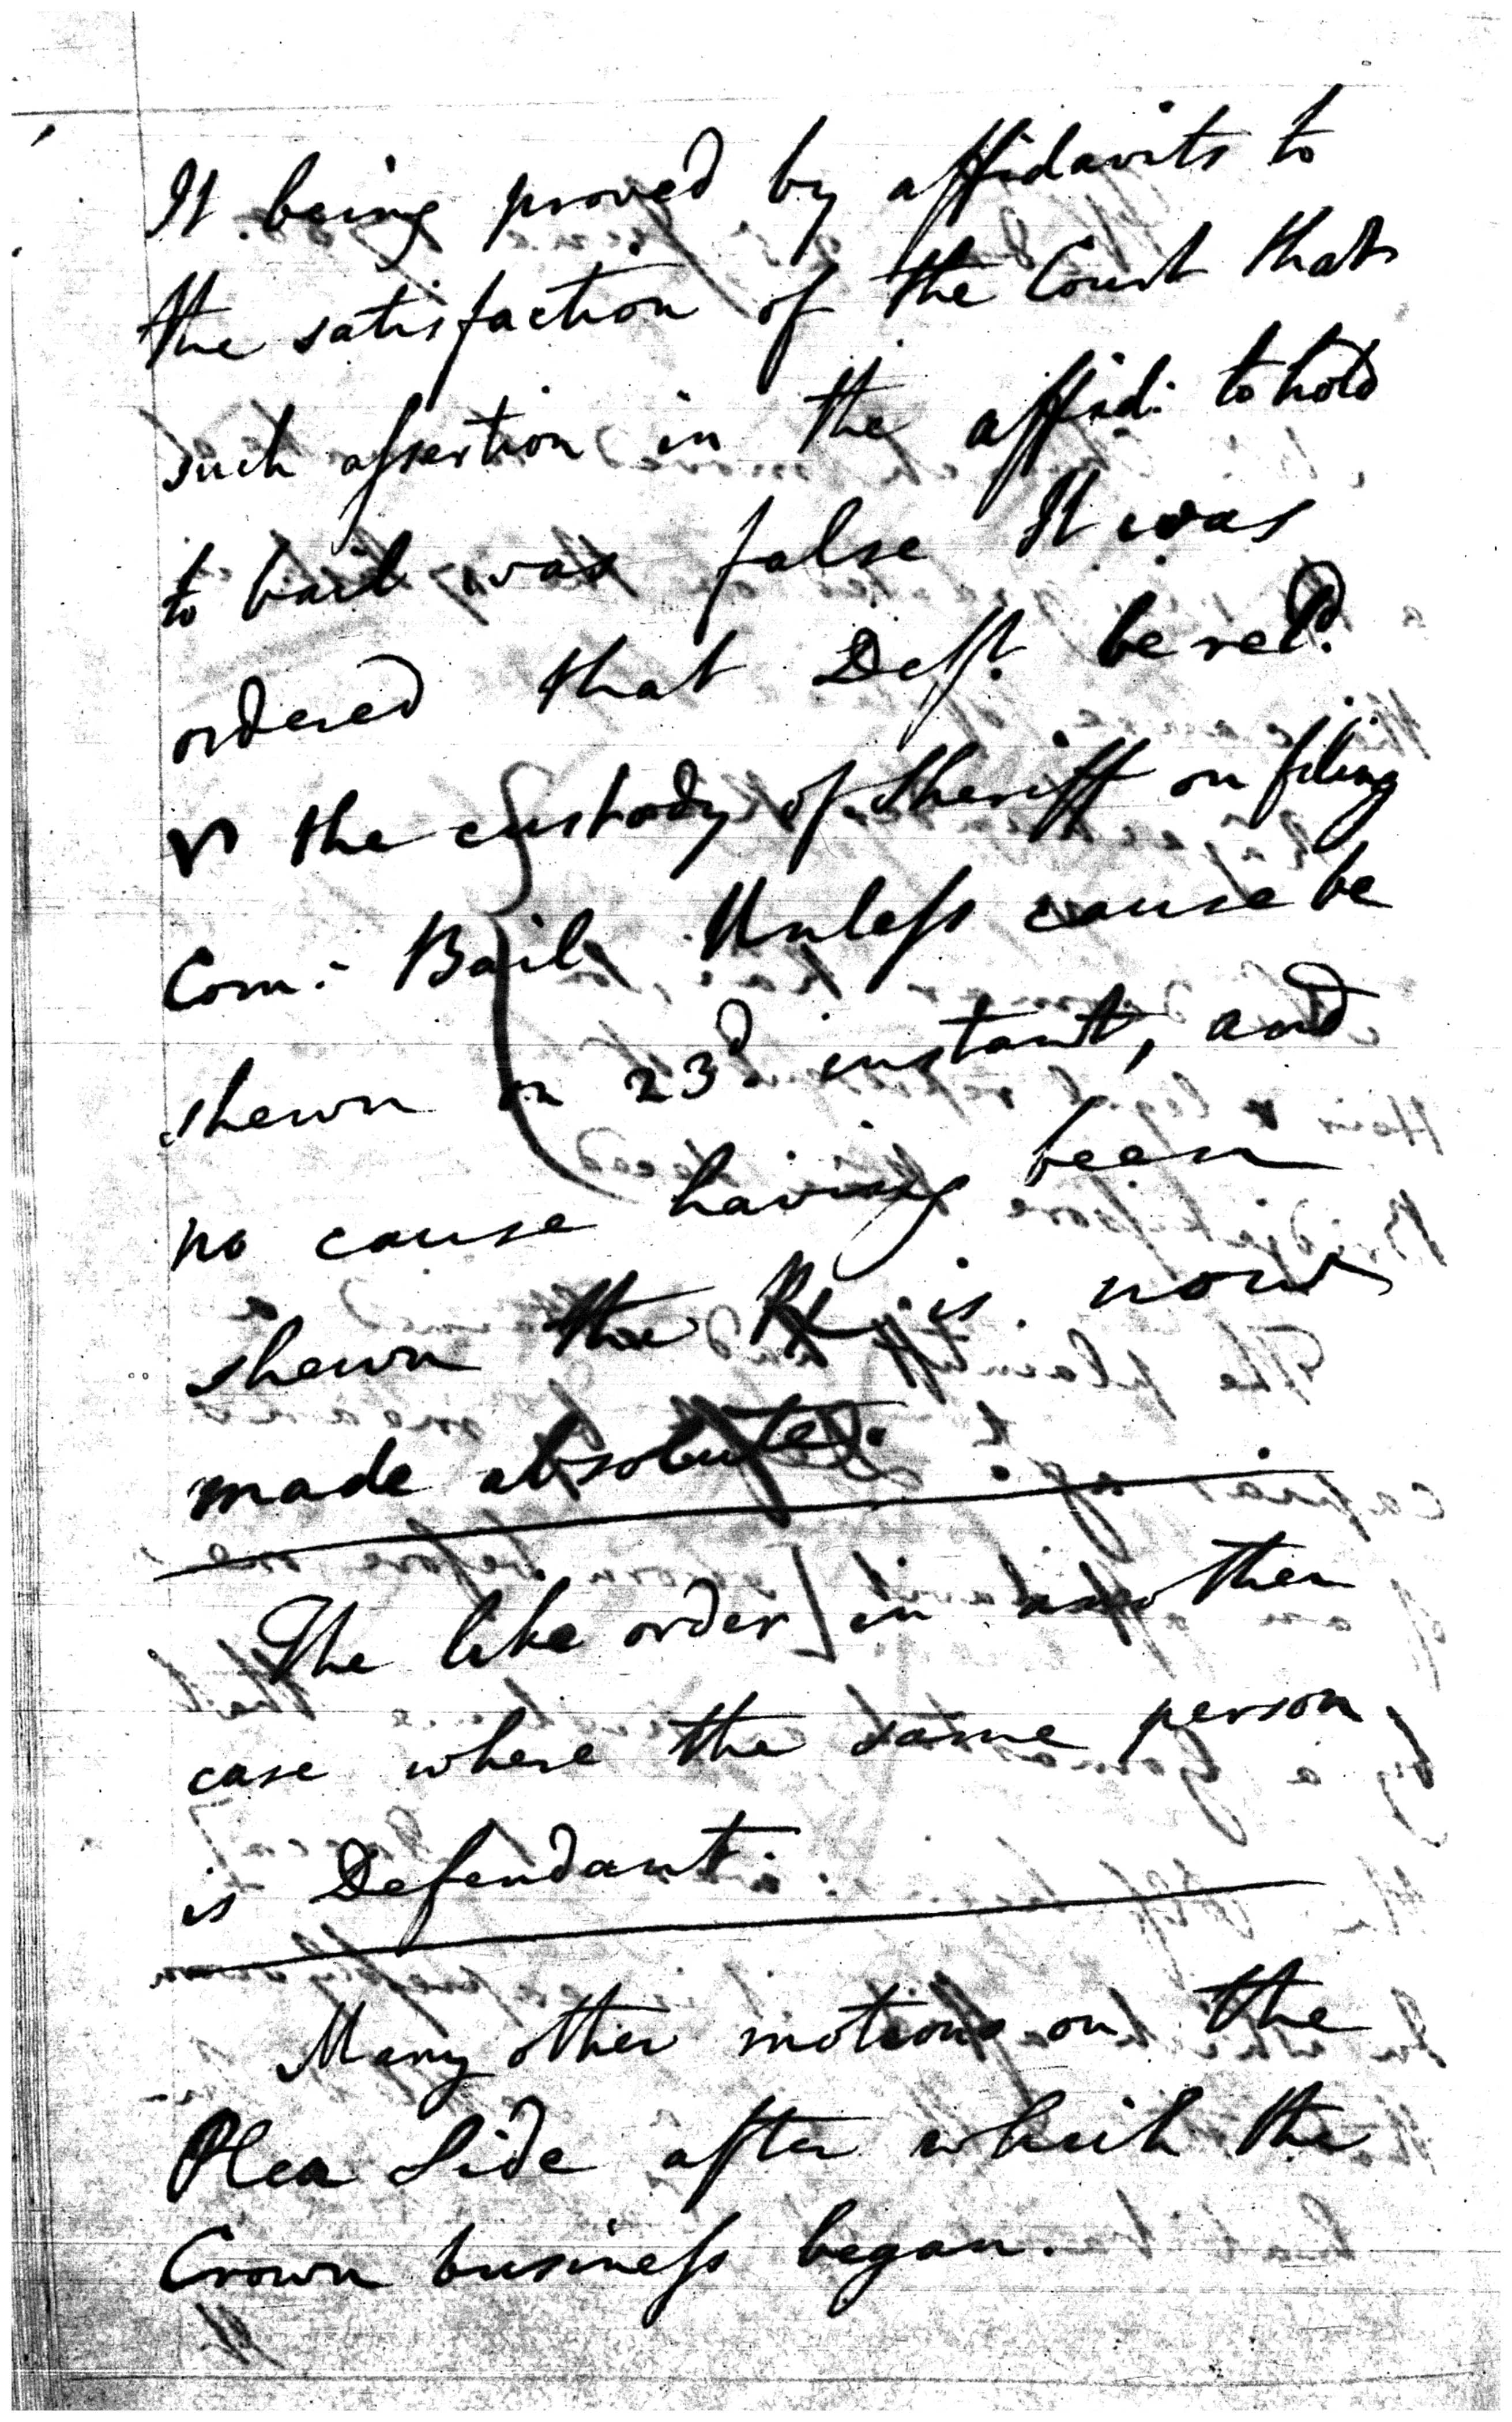 It being proved by affidavits to
the satisfaction of the Court that
such assertion in the affid: to hold
to bail was false It was
ordered that Deft. be reld.
the custody of Sheriff on filing
Com: Bail Unless cause be
shewn on 23d instant, and
no cause having been
shewn the is now
made absolute.
The like order in another
case where the same person
is Defendant.
Many other motions on the
Plea Side after which the
Crown business began.